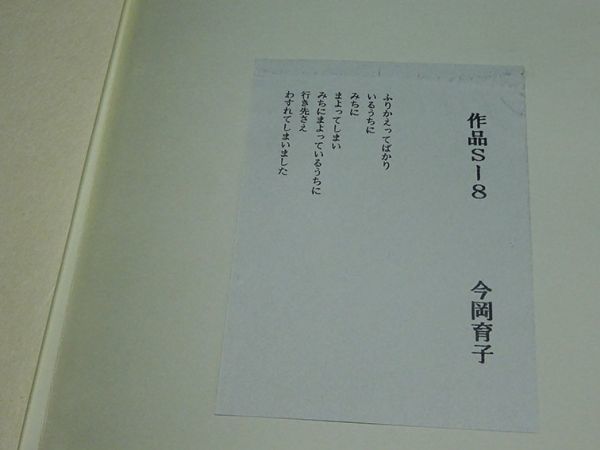 作品S－8
今岡育子
ふりかえってばかり
いるうちに
みちに
まよってしまい
みちにまよっているうちに
行き先さえ
わすれてしまいました